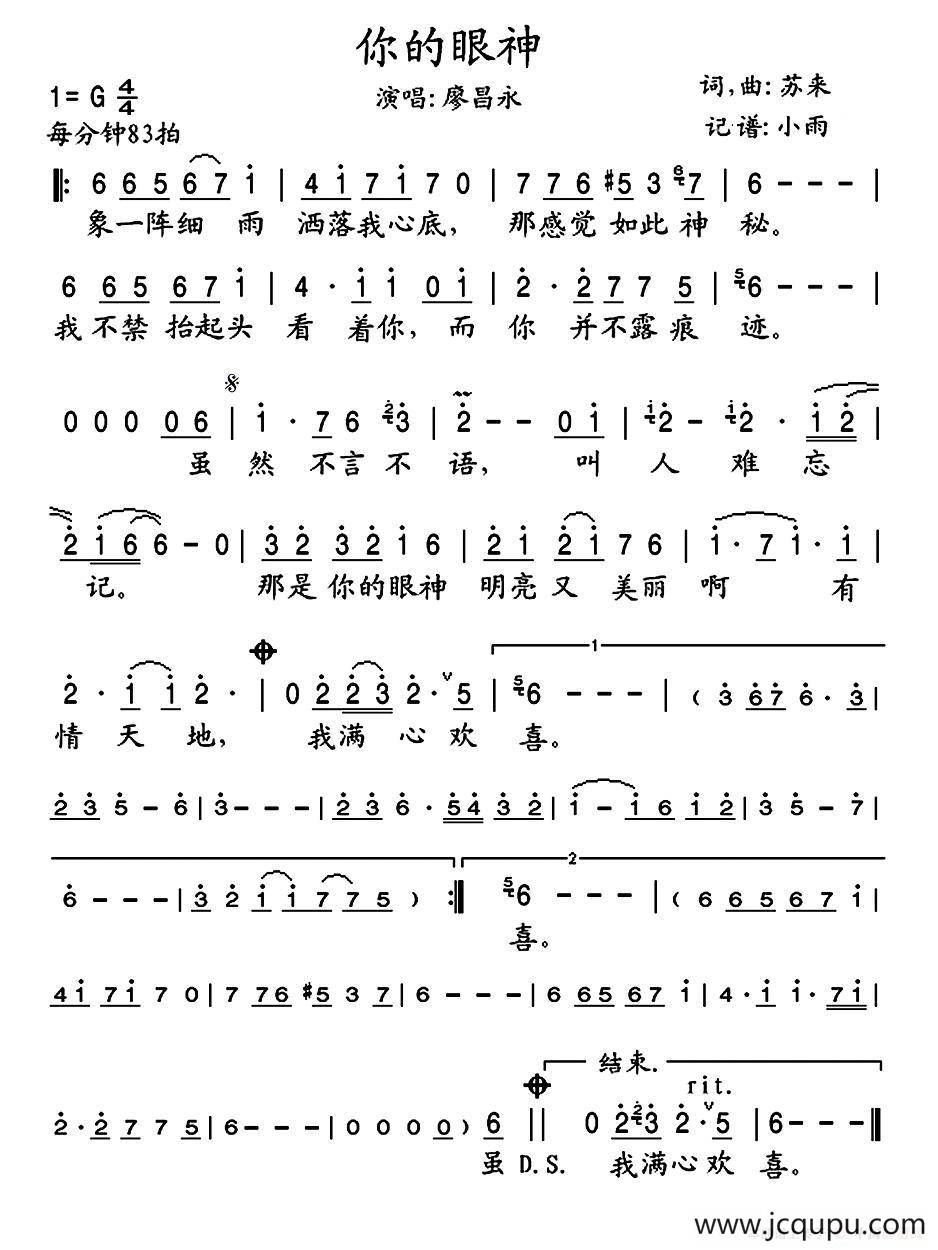 你的眼神
1= G 4/4
演唱: 廖昌永
词,曲: 苏来
每分钟83拍
记谱: 小雨
6 6 5 6 7 i | 4 i 7 i 7 0 | 7 7 6 #5 3 6 7 | 6 - - - |
象一阵细 雨 洒落我心底, 那感觉 如此 神 秘。
6 6 5 6 7 i | 4 · i i 0 i | 2 · 2 7 7 5 | 5 6 - - - |
我 不禁 抬起头 看 着你, 而 你 并不露痕 迹。
0 0 0 0 6 | i · 7 6 2 3 | 2 - - 0 i | i 2 - i 2 · i 2 |
虽 然 不言 不 语, 叫 人 难 忘
2 i 6 6 - 0 | 3 2 3 2 i 6 | 2 i 2 i 7 6 | i · 7 i · i |
记。 那是 你的眼神 明亮 又 美丽 啊 有
2 · i i 2 · | 0 2 2 3 2 · 5 | 5 6 - - - | ( 3 6 7 6 · 3 |
1
情 天 地, 我满 心 欢 喜。
2 3 5 - 6 | 3 - - - | 2 3 6 · 5 4 3 2 | i - i 6 i 2 | 3 5 - 7 |
2
6 - - - | 3 2 i i 7 7 5 ) :| 5 6 - - - | ( 6 6 5 6 7 i |
喜。
4 i 7 i 7 0 | 7 7 6 #5 3 7 | 6 - - - | 6 6 5 6 7 i | 4 · i i · 7 i |
结束.
rit.
2 · 2 7 7 5 | 6 - - - | 0 0 0 0 ) 6 || 0 2 2 3 2 · 5 | 6 - - - |
虽 D.S. 我满心 欢 喜。
www.jcqupu.com